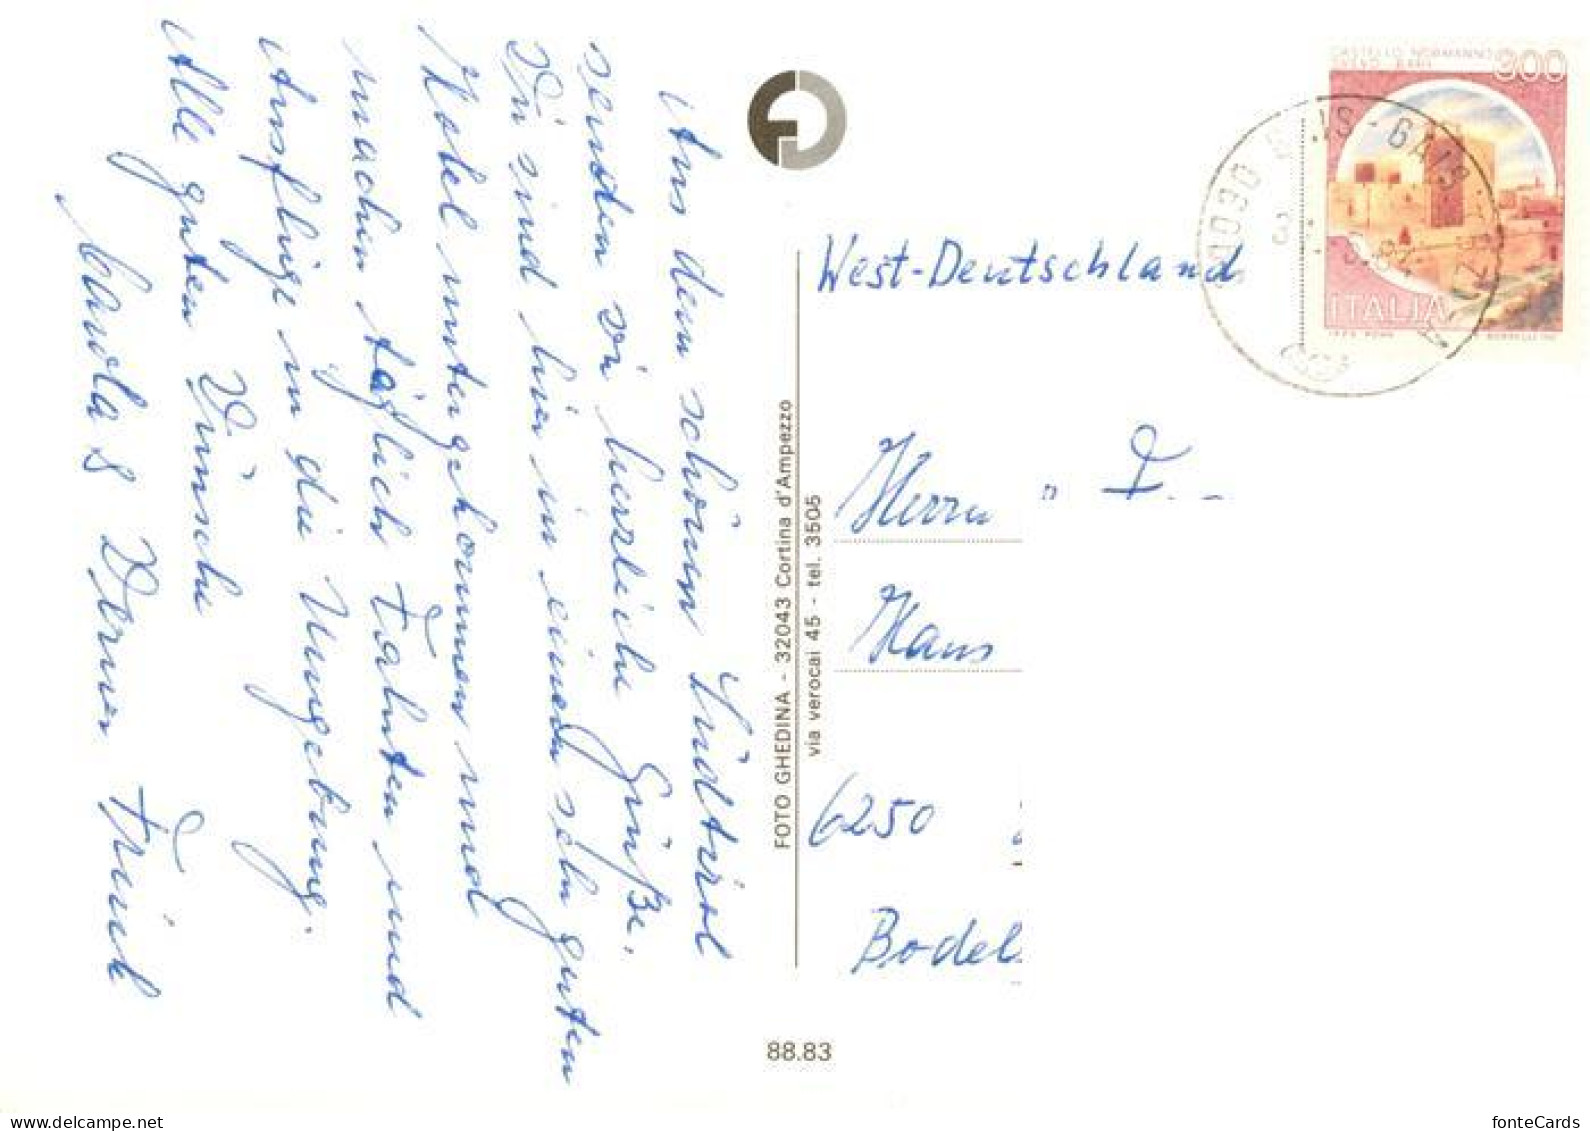 Aus dem schönen Südtirol
senden wir herzliche Grüße.
Wir sind hier in einem sehr guten
Hotel untergekommen und
machen täglich Fahrten und
Ausflüge in die Umgebung.
Alle guten Wünsche
Werner
FOTO GHEDINA - 32043 Cortina d'Ampezzo
via verocai 45 - tel. 3505
88.83
CASTELLO NORMANNO
SVEVO BARI
300
ITALIA
West-Deutschland
Herrn
Hans
6250
Bodel
delcampe.net
fonteCards